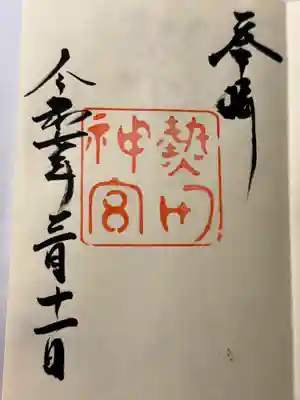 奉拝
熱田
神宮
令和 年三月十一日